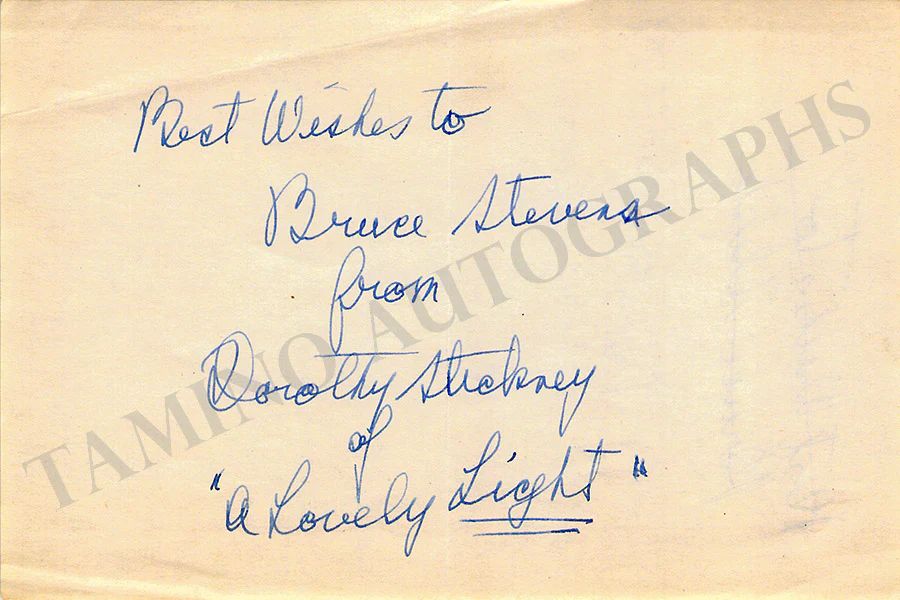 Best Wishes to
Bruce Stevens
from
Dorothy Stickney
of
"A Lovely Light"
TAMINO AUTOGRAPHS